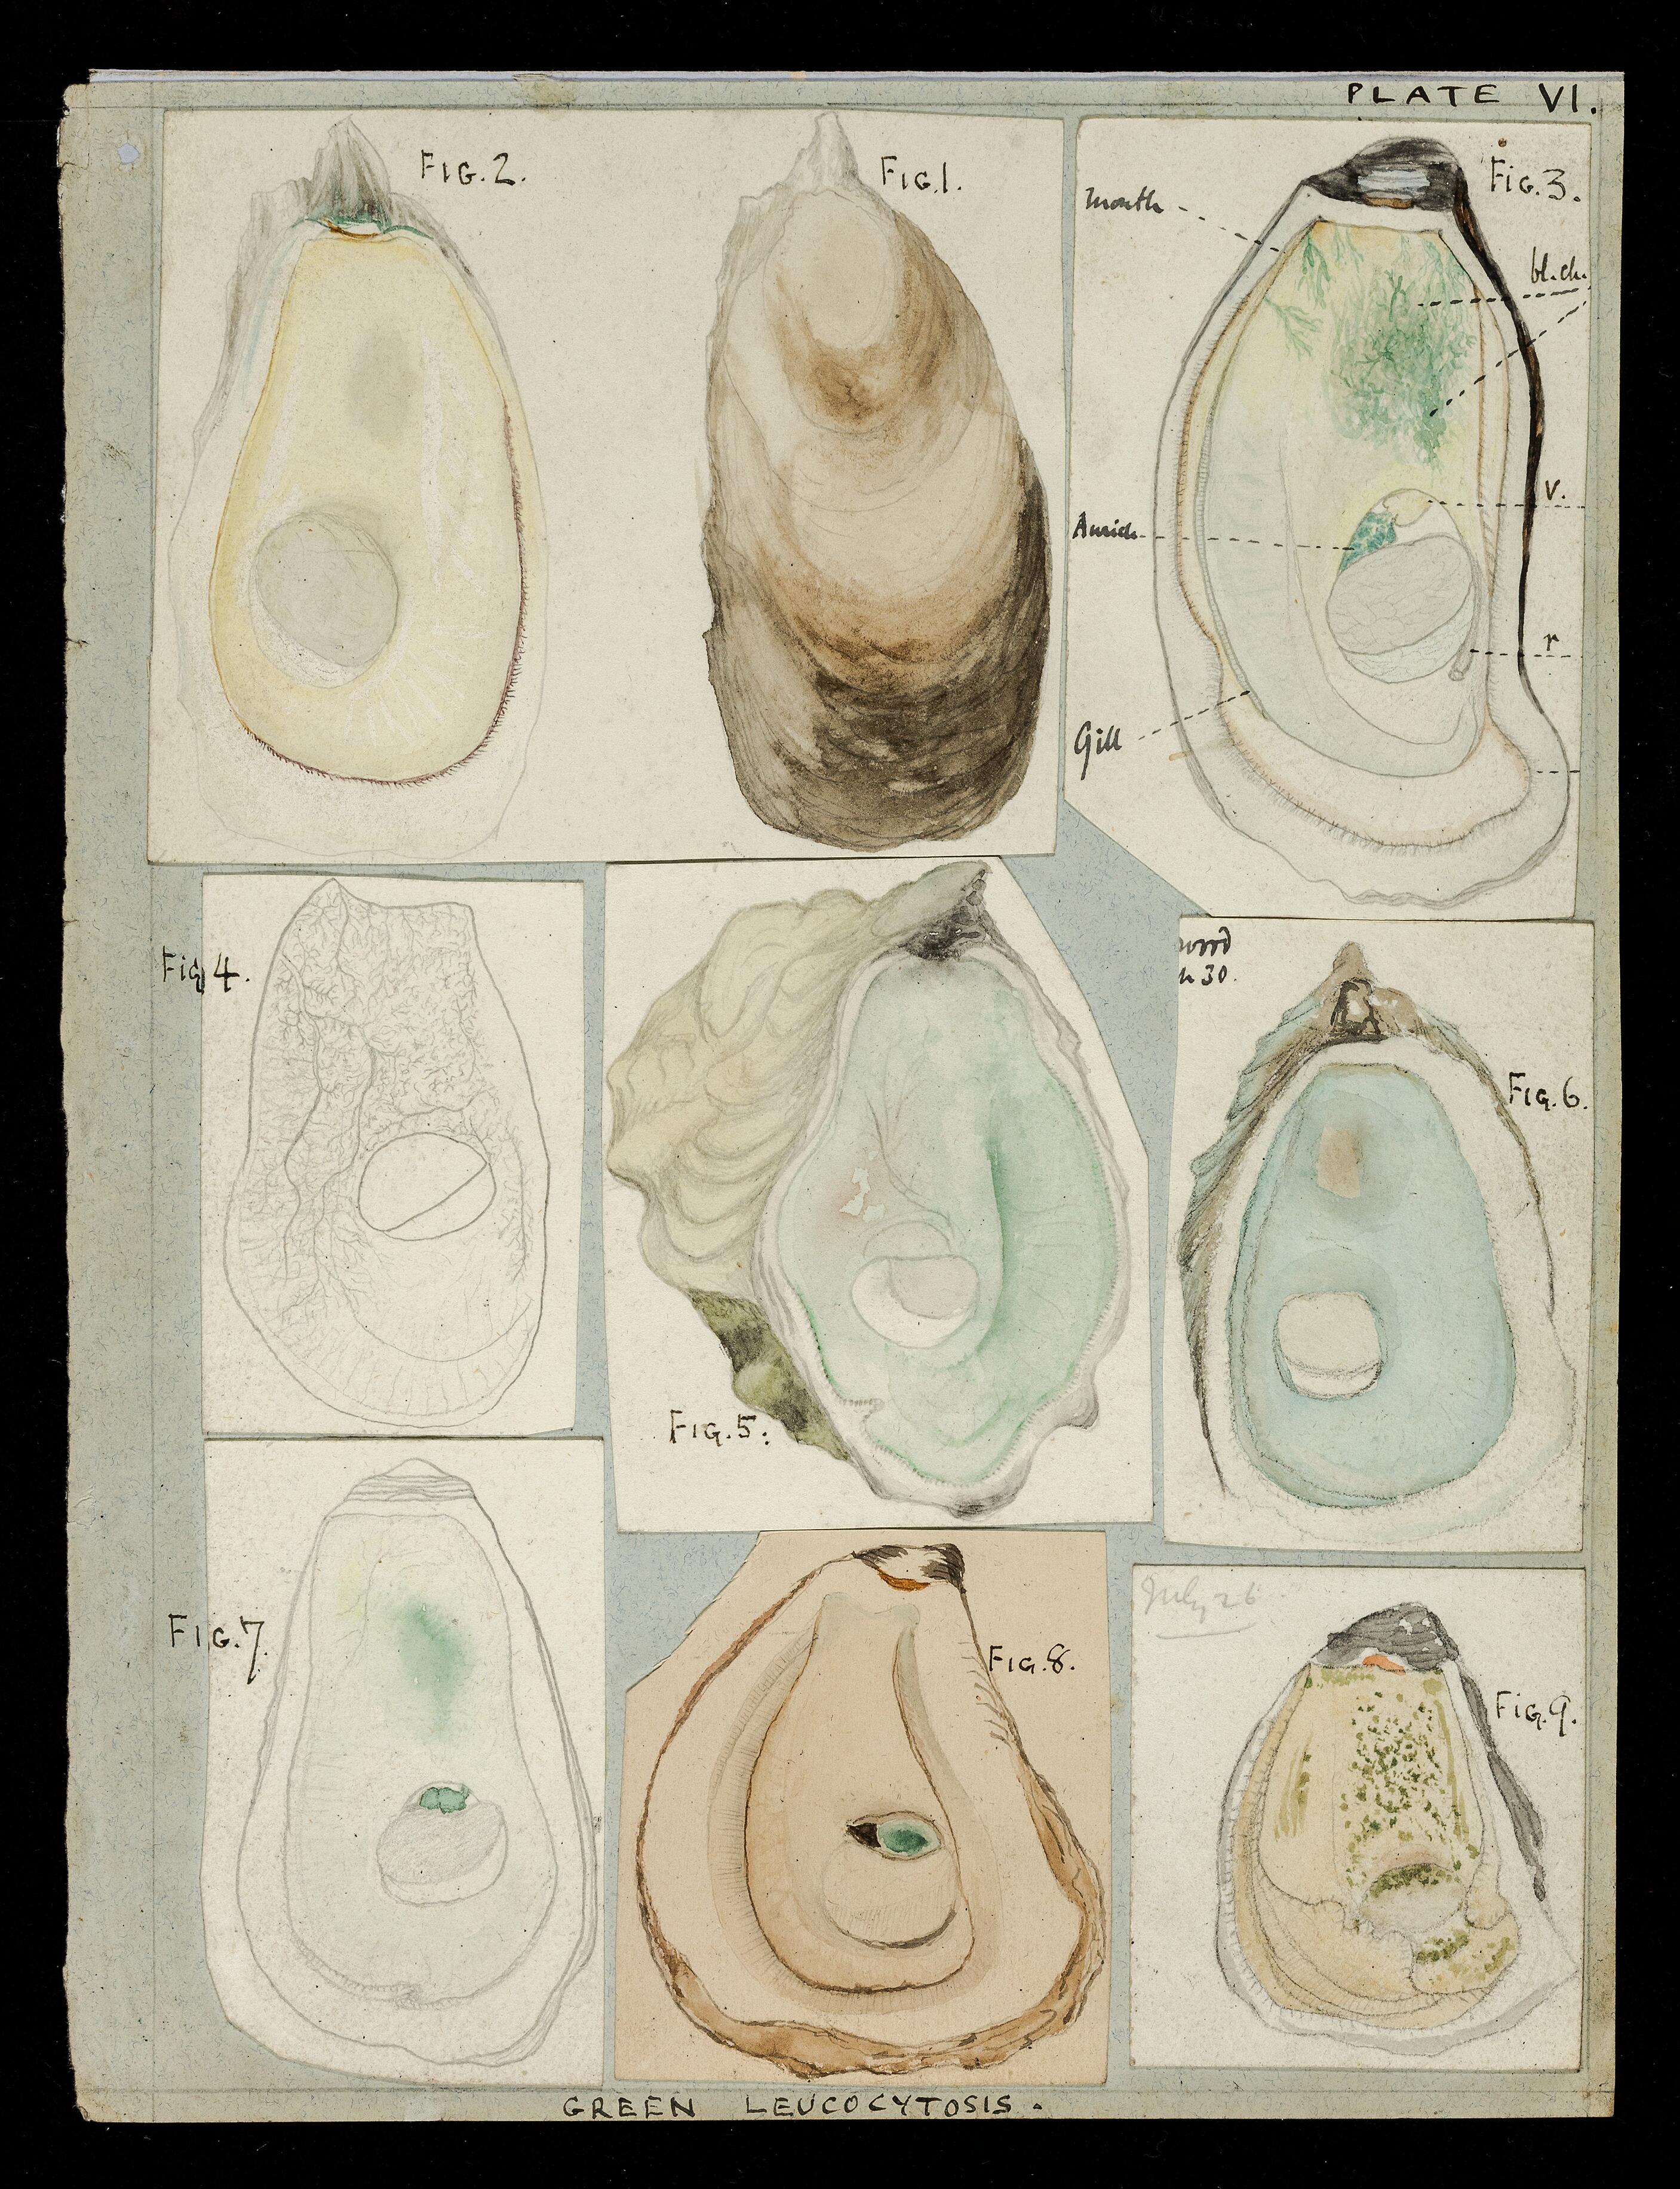 PLATE VI.
FIG. 2.
FIG. 1.
FIG. 3.
mouth
bl. ch.
V.
Auricle
r
Gill
Fig 4.
h 30.
FIG. 6.
FIG. 5.
FIG. 7.
FIG. 8.
July 26
FIG. 9.
GREEN LEUCOCYTOSIS.